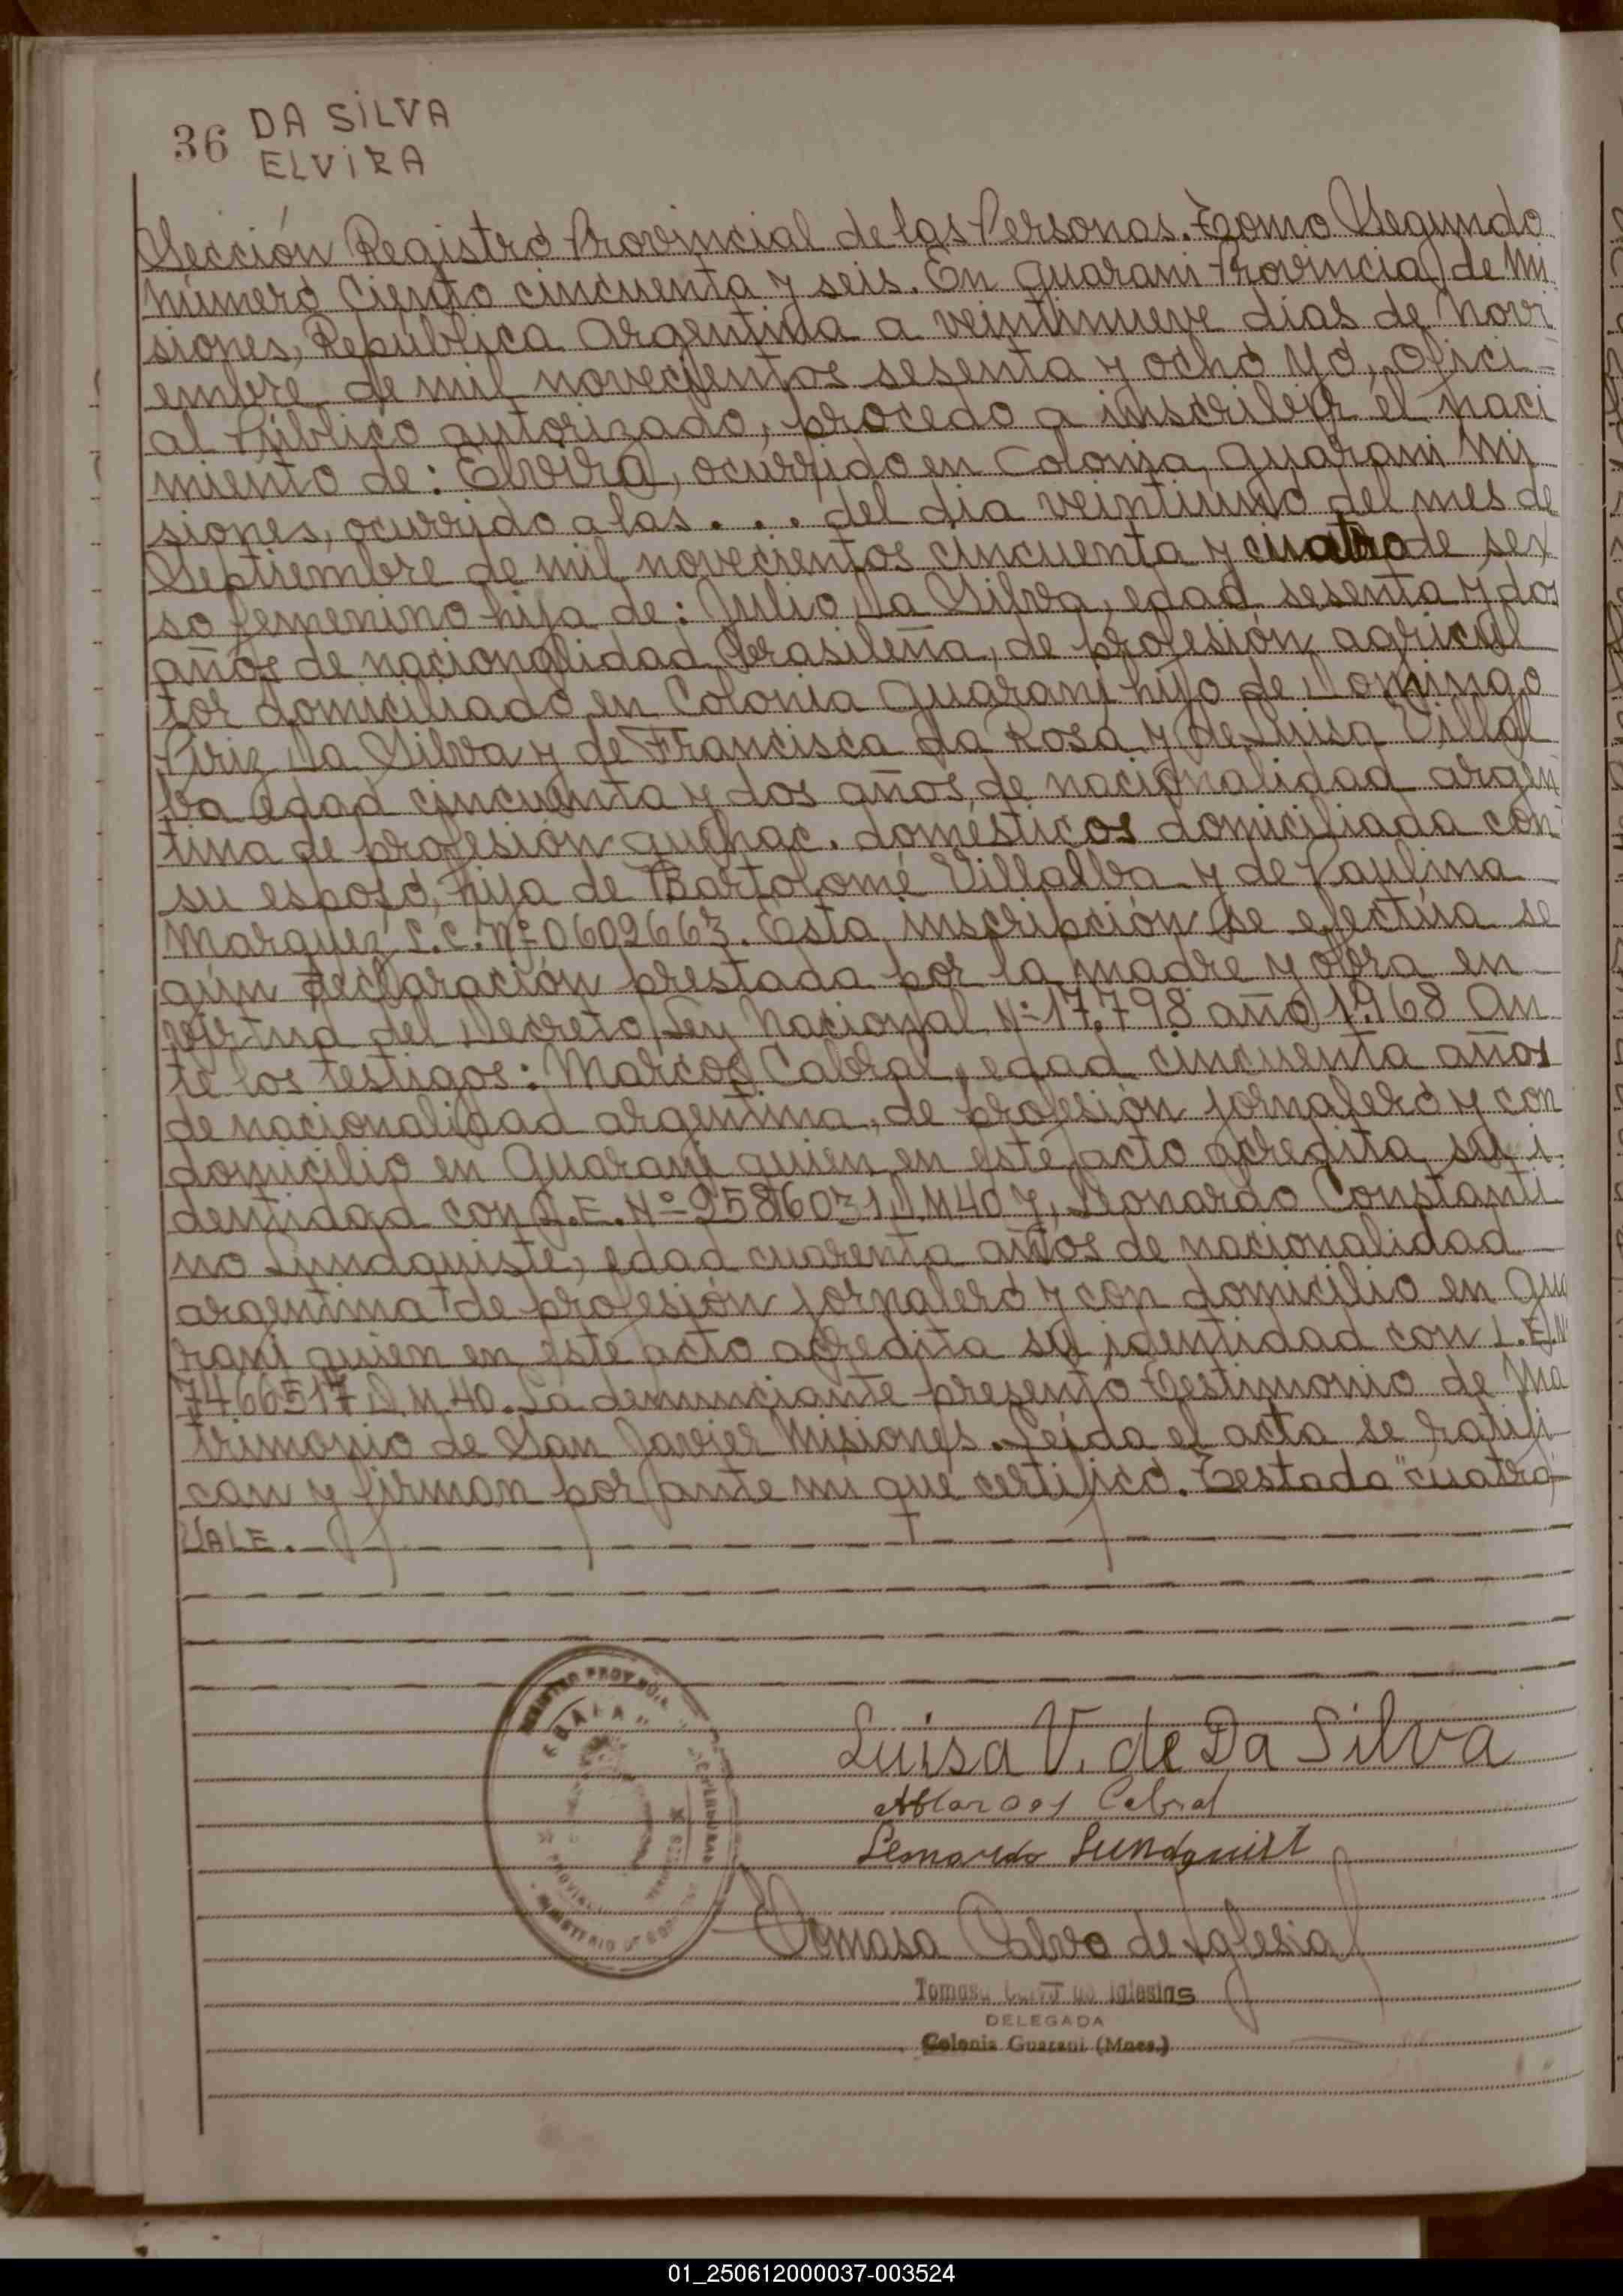 36 DA SILVA
ELVIRA
Sección Registro Provincial de las Personas. Tomo Segundo
número Ciento cincuenta y seis. En Guarani Provincia de Mi
siones, República Argentina a veintinueve días de Novi
embre de mil novecientos sesenta y ocho Yo, Ofici-
al Público autorizado, procedo a inscribir el naci
miento de: Elvira, ocurrido en Colonia Guarani Mi
siones, ocurrido a las . . . del dia veintiuno del mes de
Septiembre de mil novecientos cincuenta y cuatro de sex
so femenino hija de: Julio Da Silva, edad sesenta y dos
años de nacionalidad brasileña, de profesión agricul
tor domiciliado en Colonia Guarani hijo de Domingo
Piriz Da Silva y de Francisca da Rosa y de Luisa Villal
ba edad cincuenta y dos años, de nacionalidad argen
tina de profesión quehac. domésticos domiciliada con
su esposo, hija de Bartolomé Villalba y de Paulina
Marquez L.C. Nº 0609663. Esta inscripción se efectúa se
gún declaración prestada por la madre y obra en
virtud del Decreto Ley Nacional Nº 17.798 año 1.968 An
te los testigos: Marcos Cabral, edad cincuenta años
de nacionalidad argentina, de profesión jornalero y con
domicilio en Guarani quien en este acto acredita su i
dentidad con L.E. Nº 2586031 D.M 40 y, Leonardo Constanti
no Lundquiste, edad cuarenta años de nacionalidad
argentina de profesión jornalero y con domicilio en Gua
rani quien en este acto acredita su identidad con L.E.Nº
7466517 D.M. 40. La denunciante presento Testimonio de Ma
trimonio de San Javier Misiones. Leída el acta se ratifi
can y firman por ante mi que certifico. Testado "cuatro"
VALE.
Luisa V. de Da Silva
Marcos Cabral
Leonardo Lundquist
Tomasa Calvo de Iglesia
Tomasa Calvo de Iglesias
DELEGADA
Colonia Guarani (Mnes.)
01_250612000037-003524